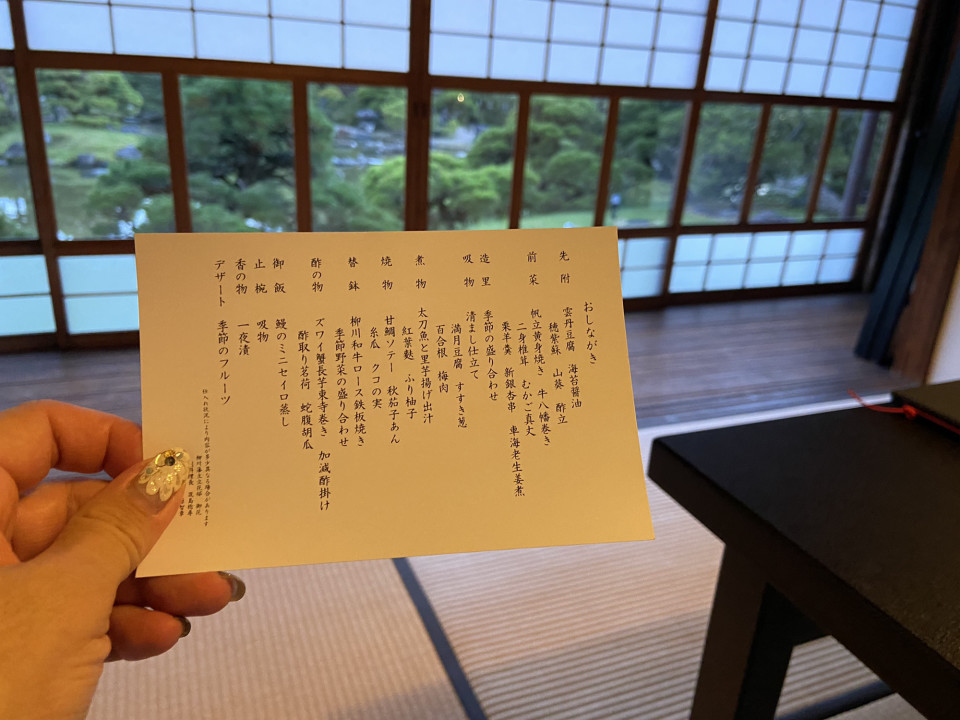 おしながき
先附 雲丹豆腐 海苔醤油
穂紫蘇 山葵 酢立
前菜 帆立黄身焼き 牛八幡巻き
二身椎茸 むかご真丈
栗羊羹 新銀杏串 車海老生姜煮
造里 季節の盛り合わせ
吸物 清まし仕立て
満月豆腐 すすき葱
百合根 梅肉
煮物 太刀魚と里芋揚げ出汁
紅葉麩 ふり柚子
焼物 甘鯛ソテー 秋茄子あん
糸瓜 クコの実
替鉢 柳川和牛ロース鉄板焼き
季節野菜の盛り合わせ
酢の物 ズワイ蟹長芋東寺巻き 加減酢掛け
酢取り茗荷 蛇腹胡瓜
御飯 鰻のミニセイロ蒸し
止椀 吸物
香の物 一夜漬
デザート 季節のフルーツ
仕入れ状況により内容が多少異なる場合があります
柳川藩主立花邸 御花
料理長